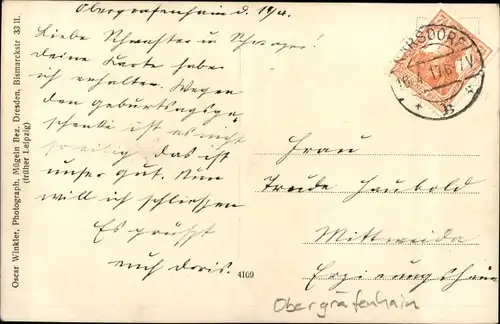 Obergräfenhain d. 19/4.
Liebe Schwester u Schwager!
deine Karte habe
ich erhalten. Wegen
den Geburtstagsge-
schenke ist es nicht
so eilig das ist
unser gut. Nun
will ich schliessen
Es grüsst
euch Doris.
Oscar Winkler, Photograph, Mügeln Bez. Dresden, Bismarckstr 33 II.
(früher Leipzig)
4109
Frau
Trude Haubold
Mittweida
Erziehungsheim
Obergräfenhain